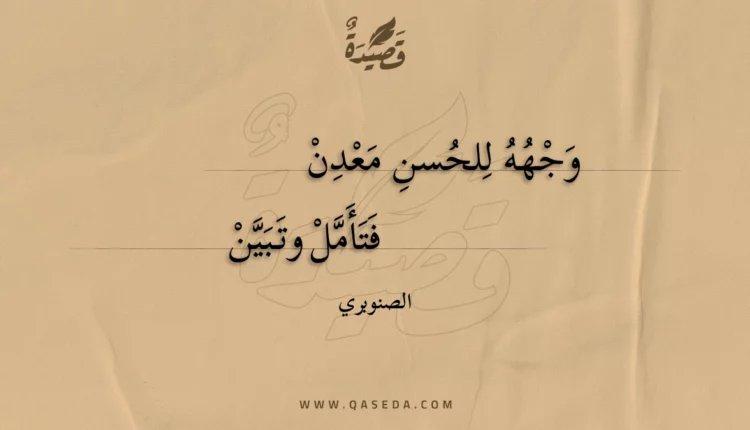 قَصِيْدَةٌ
وَجْهُهُ لِلحُسنِ مَعْدِنْ
فَتَأَمَّلْ وتَبَيَّنْ
الصنوبري
WWW.QASEDA.COM